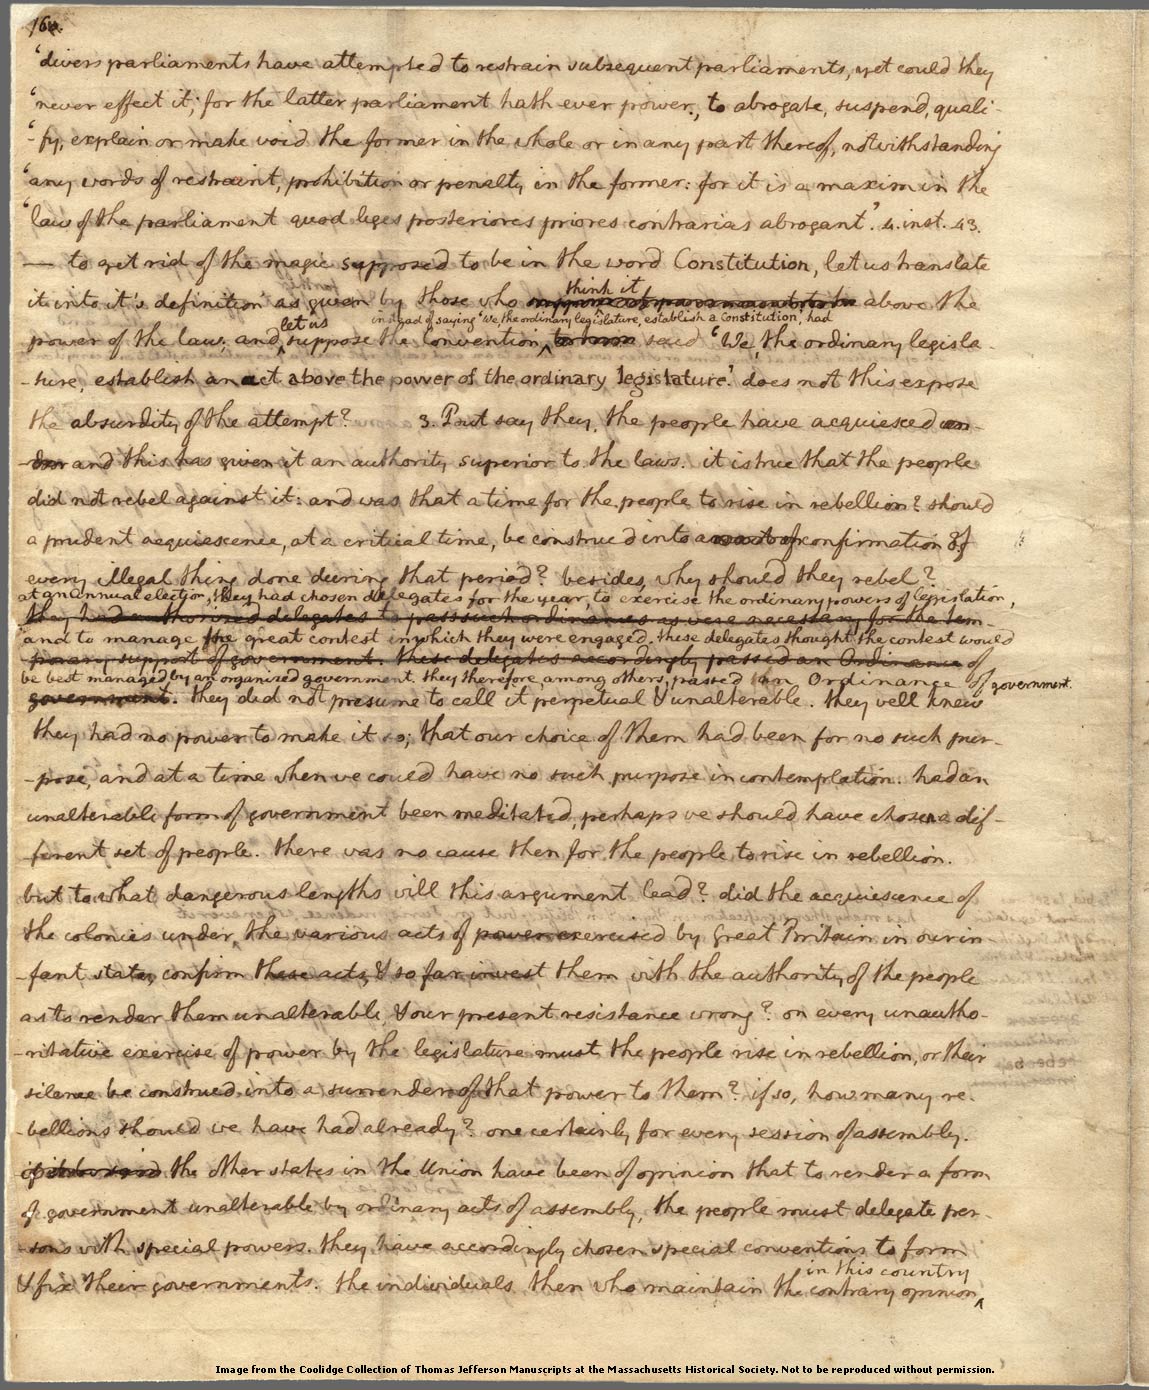 160.
'divers parliaments have attempted to restrain subsequent parliaments, yet could they
'never effect it; for the latter parliament hath ever power, to abrogate, suspend, quali-
'-fy, explain or make void the former in the whole or in any part thereof, notwithstanding
'any words of restraint, prohibition or penalty in the former: for it is a maxim in the
'law of the parliament quod leges posteriores priores contrarias abrogant'. 4. inst. 43.
— to get rid of the magic supposed to be in the word Constitution, let us translate
think it
it into it's definition as given by those who above the
let us instead of saying 'We, the ordinary legislature, establish a Constitution, had
power of the law; and suppose the Convention said 'We, the ordinary legisla-
-ture, establish an act above the power of the ordinary legislature.' does not this expose
the absurdity of the attempt? 3. But say they, the people have acquiesced
and this has given it an authority superior to the laws. it is true that the people
did not rebel against it: and was that a time for the people to rise in rebellion? should
a prudent acquiescence, at a critical time, be construed into a confirmation of
every illegal thing done during that period? besides, why should they rebel?
at an annual election, they had chosen delegates for the year, to exercise the ordinary powers of legislation,
they had authorised delegates to pass such ordinances as were necessary for the tem-
and to manage the great contest in which they were engaged. these delegates thought the contest would
porary support of government. these delegates accordingly passed an Ordinance of
be best managed by an organised government. they therefore, among others, passed an Ordinance of government.
government. they did not presume to call it perpetual & unalterable. they well knew
they had no power to make it so; that our choice of them had been for no such pur-
-pose, and at a time when we could have no such purpose in contemplation. had an
unalterable form of government been meditated, perhaps we should have chosen a dif-
-ferent set of people. there was no cause then for the people to rise in rebellion.
but to what dangerous lengths will this argument lead? did the acquiescence of
the colonies under the various acts of power exercised by Great Britain in our in-
-fant state, confirm these acts, & so far invest them with the authority of the people
as to render them unalterable, & our present resistance wrong? on every unautho-
-ritative exercise of power by the legislature must the people rise in rebellion, or their
silence be construed into a surrender of that power to them? if so, how many re-
-bellions should we have had already? one certainly for every session of assembly.
if it be said the other states in the Union have been of opinion that to render a form
of government unalterable by ordinary acts of assembly, the people must delegate per-
-sons with special powers. they have accordingly chosen special conventions to form
in this country
& fix their governments. the individuals then who maintain the contrary opinion
Image from the Coolidge Collection of Thomas Jefferson Manuscripts at the Massachusetts Historical Society. Not to be reproduced without permission.